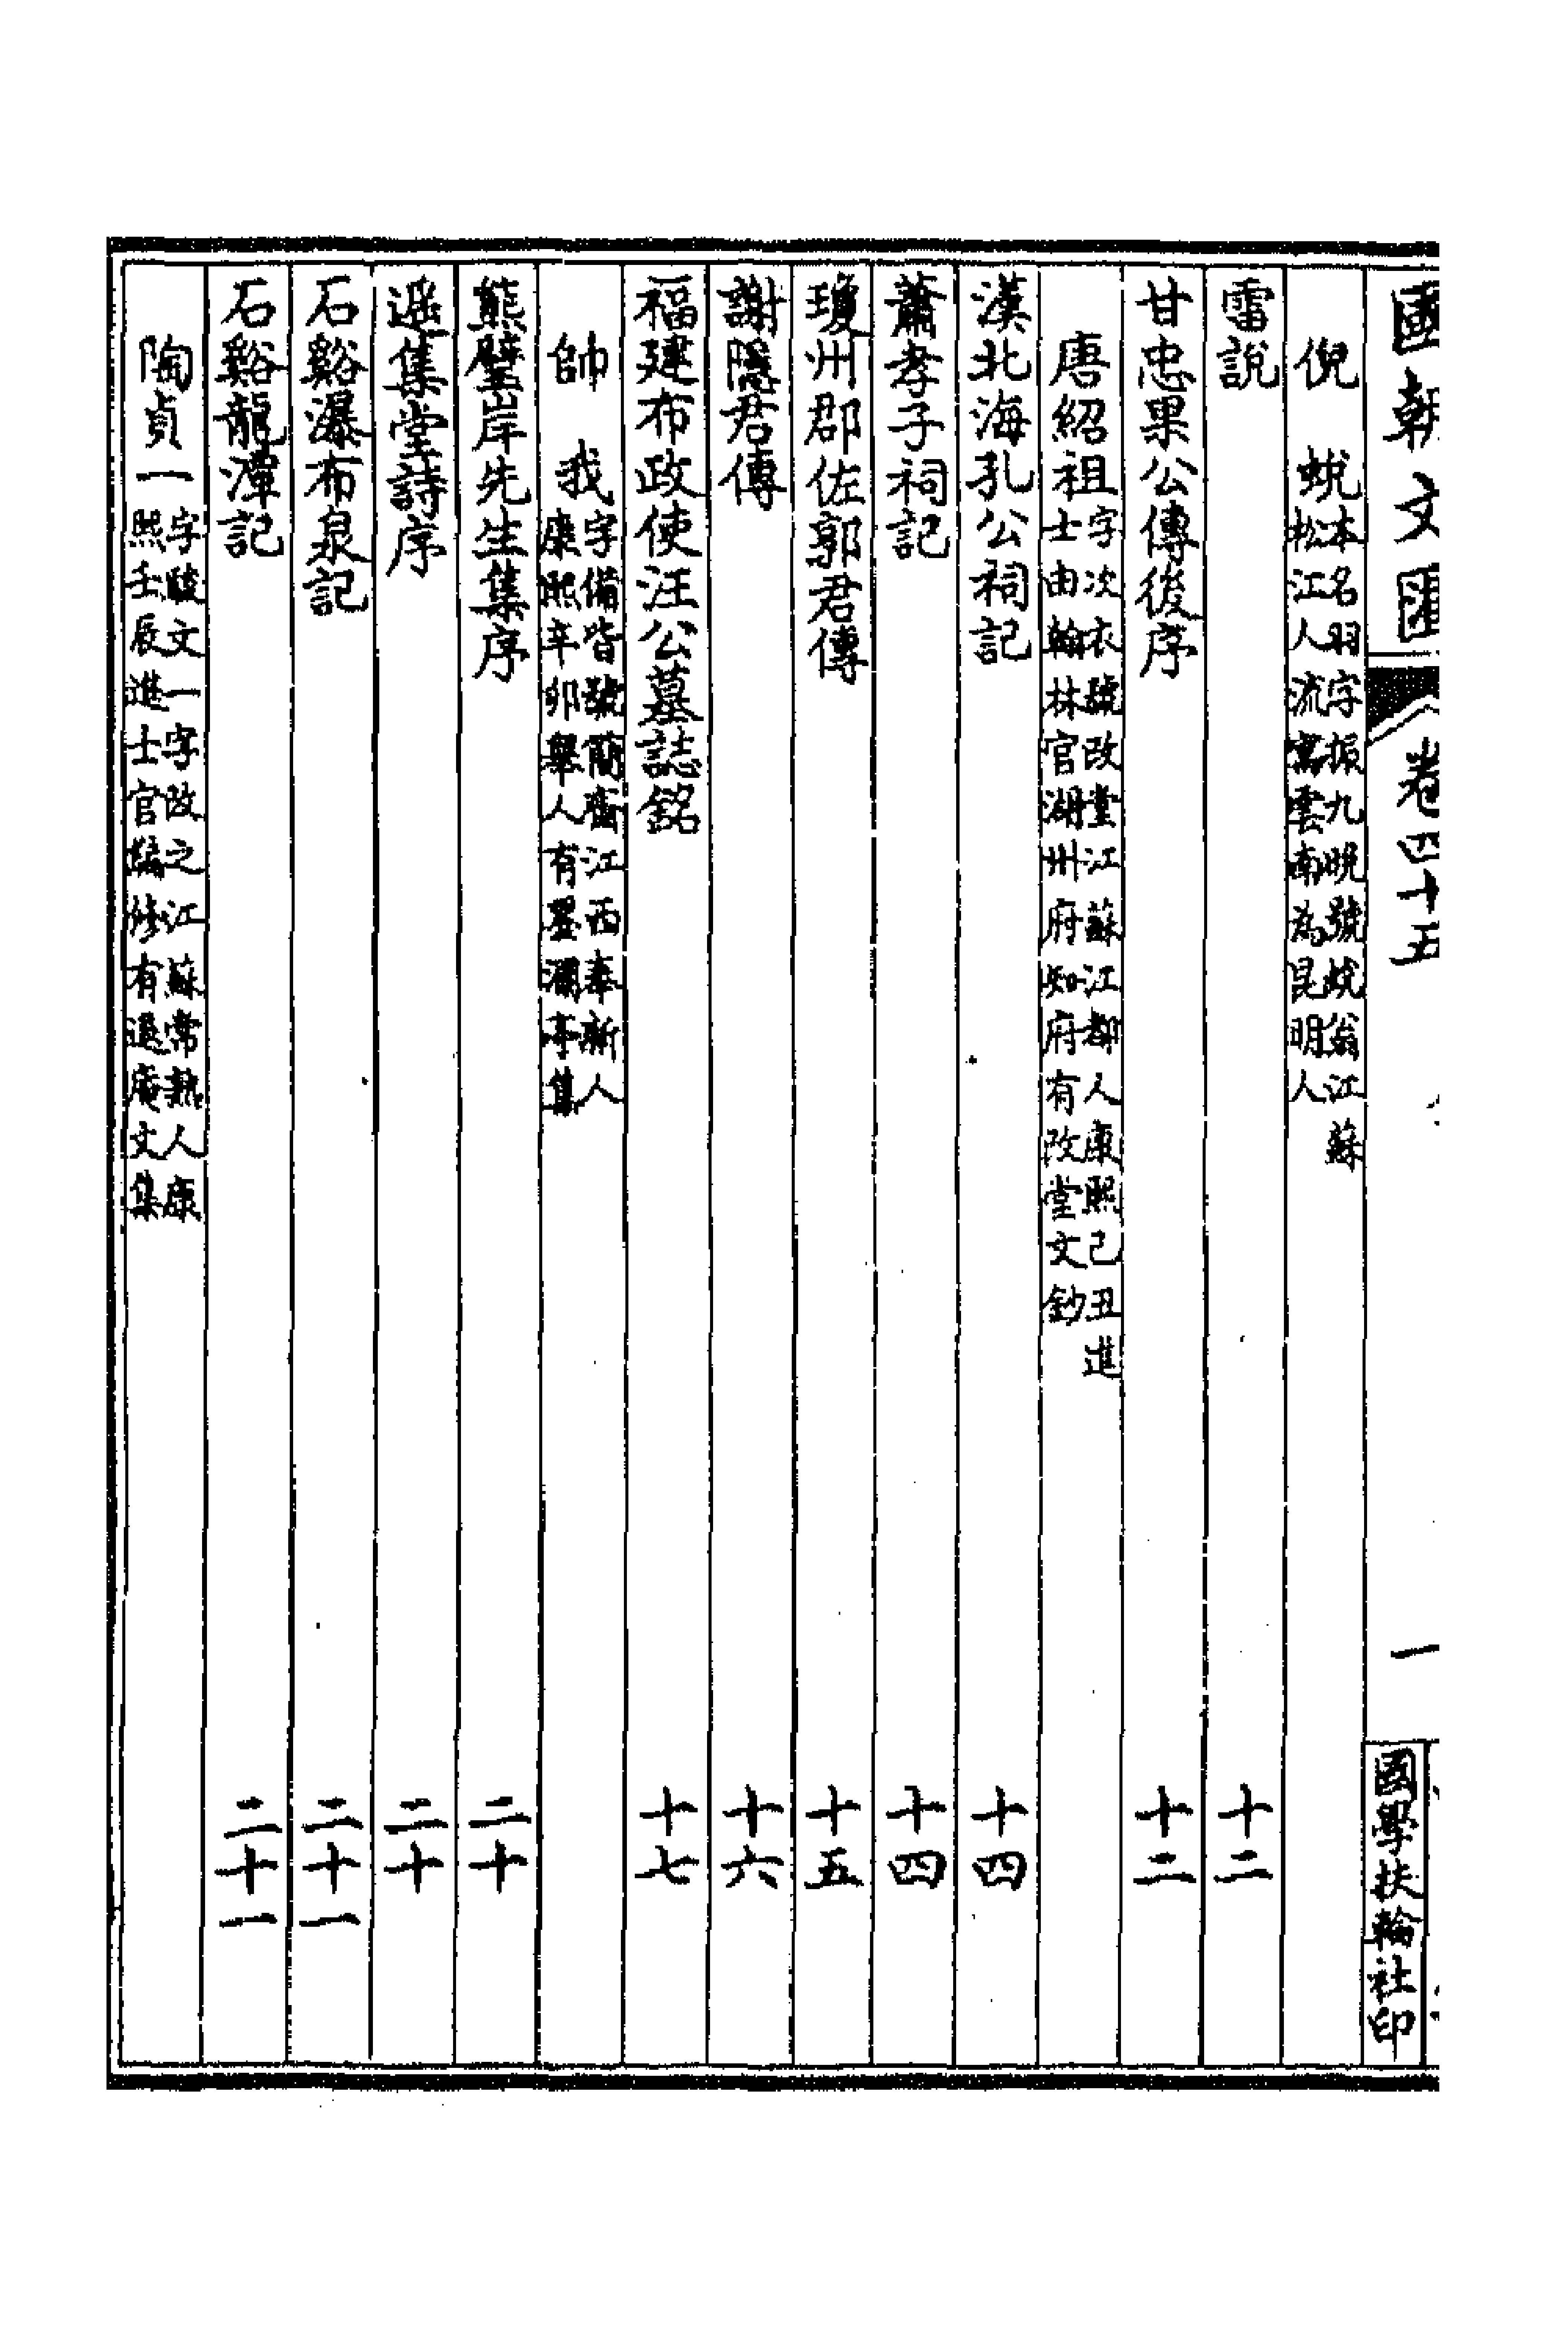 國朝文匯 卷四十五 一 國學扶輪社印
倪 蛻 本名羽字振九晚號蛻翁江蘇
松江人流寓雲南為昆明人
雷說 十二
甘忠果公傳後序 十二
唐紹祖 字次衣號改堂江蘇江都人康熙己丑進
士由翰林官湖州府知府有改堂文鈔
漢北海孔公祠記 十四
蕭孝子祠記 十四
瓊州郡佐郭君傳 十五
謝隱君傳 十六
福建布政使汪公墓誌銘 十七
帥 我 字備皆號簡齋江西奉新人
康熙辛卯舉人有墨瀾亭集
熊壁岸先生集序 二十
遥集堂詩序 二十
石谿瀑布泉記 二十一
石谿龍潭記 二十一
陶貞一 字駿文一字改之江蘇常熟人康
熙壬辰進士官編修有退庵文集